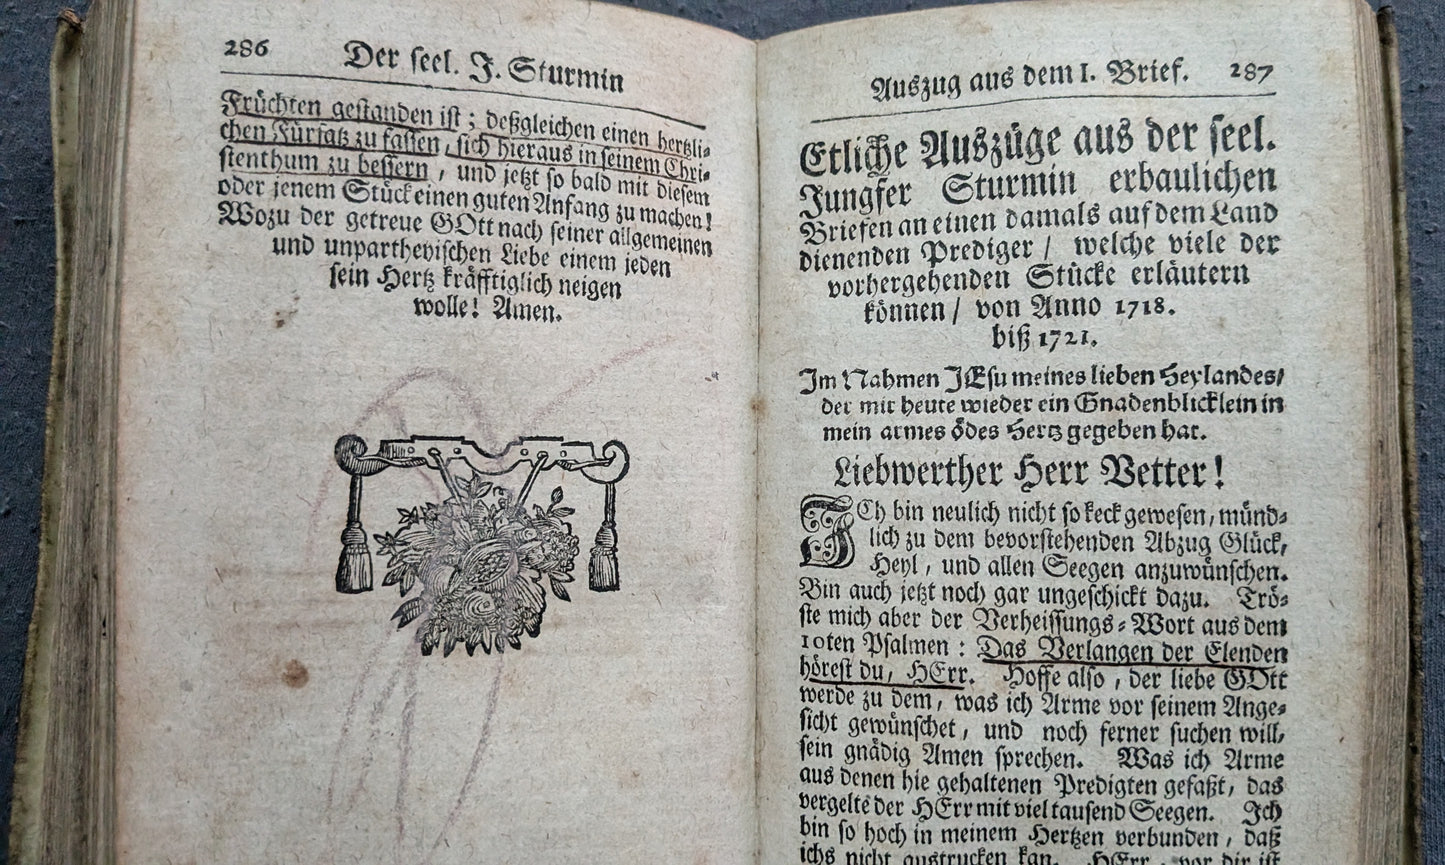 286 Der seel. J. Sturmin
Früchten gestanden ist; deßgleichen einen hertzli⸗
chen Fürsatz zu fassen, sich hieraus in seinem Chri⸗
stenthum zu bessern, und jetzt so bald mit diesem
oder jenem Stück einen guten Anfang zu machen!
Wozu der getreue GOtt nach seiner allgemeinen
und unpartheyischen Liebe einem jeden
sein Hertz kräfftiglich neigen
wolle! Amen.
Auszug aus dem I. Brief. 287
Etliche Auszüge aus der seel.
Jungfer Sturmin erbaulichen
Briefen an einen damals auf dem Land
dienenden Prediger / welche viele der
vorhergehenden Stücke erläutern
können / von Anno 1718.
biß 1721.
Im Nahmen JEsu meines lieben Heylandes/
der mir heute wieder ein Gnadenblicklein in
mein armes ödes Hertz gegeben hat.
Liebwerther Herr Vetter!
ICh bin neulich nicht so keck gewesen, münd⸗
lich zu dem bevorstehenden Abzug Glück,
Heyl, und allen Seegen anzuwünschen.
Bin auch jetzt noch gar ungeschickt dazu. Trö⸗
ste mich aber der Verheissungs⸗Wort aus dem
10ten Psalmen: Das Verlangen der Elenden
hörest du, HErr. Hoffe also, der liebe GOtt
werde zu dem, was ich Arme vor seinem Ange⸗
sicht gewünschet, und noch ferner suchen will,
sein gnädig Amen sprechen. Was ich Arme
aus denen hie gehaltenen Predigten gefaßt, das
vergelte der HErr mit viel tausend Seegen. Ich
bin so hoch in meinem Hertzen verbunden, daß
ichs nicht austrucken kan. HErr, vor dir ist